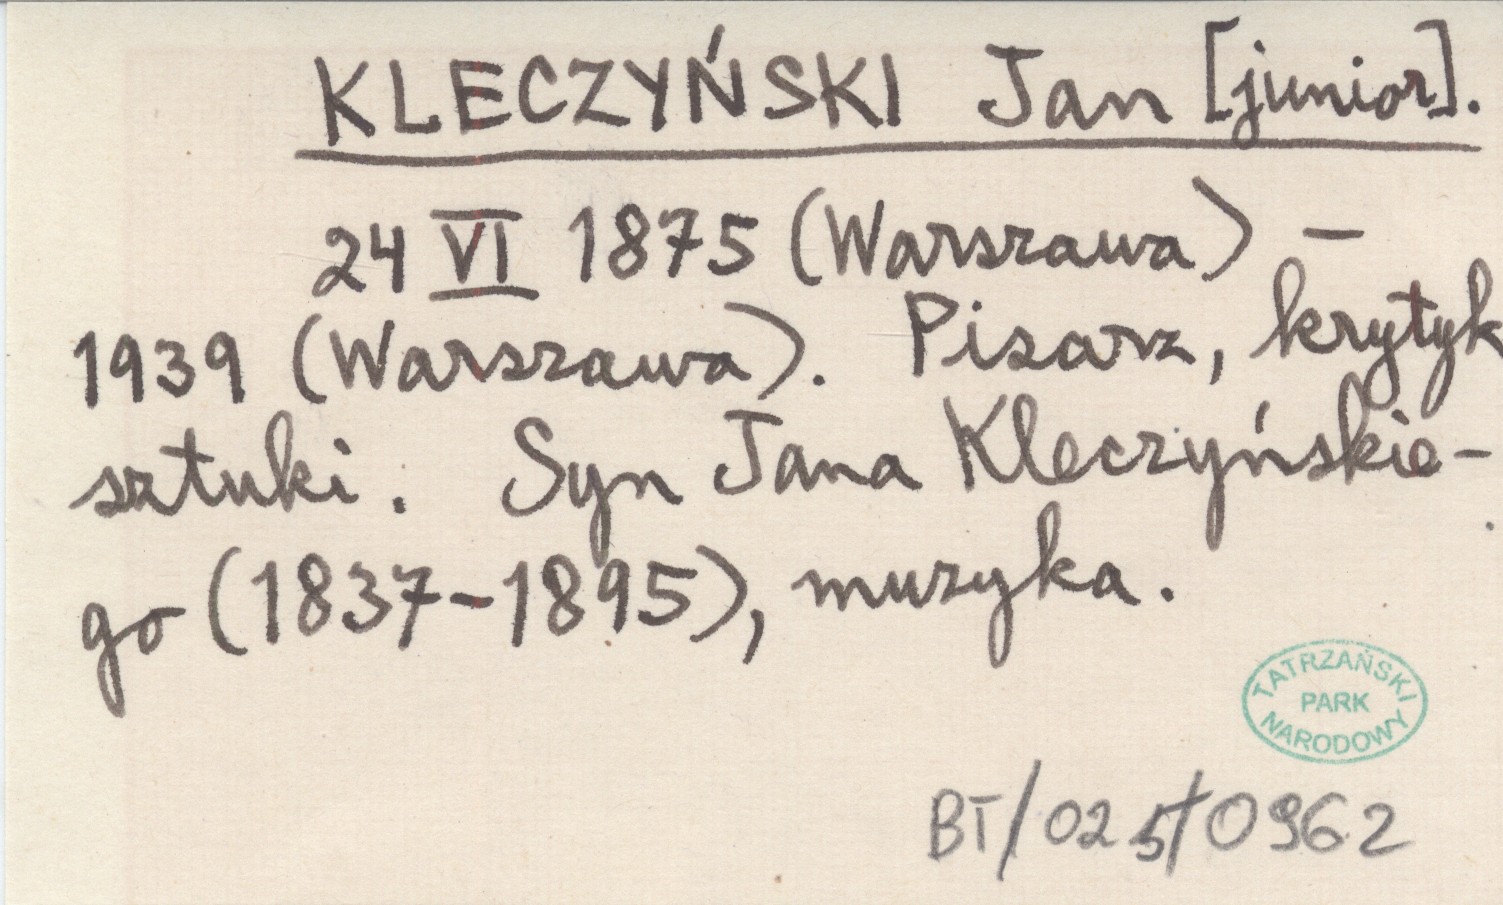 KLECZYŃSKI Jan [junior].
24 VI 1875 (Warszawa) –
1939 (Warszawa). Pisarz, krytyk
sztuki. Syn Jana Kleczyńskie-
go (1837-1895), muzyka.
TATRZAŃSKI
PARK
NARODOWY
BT/025/0962